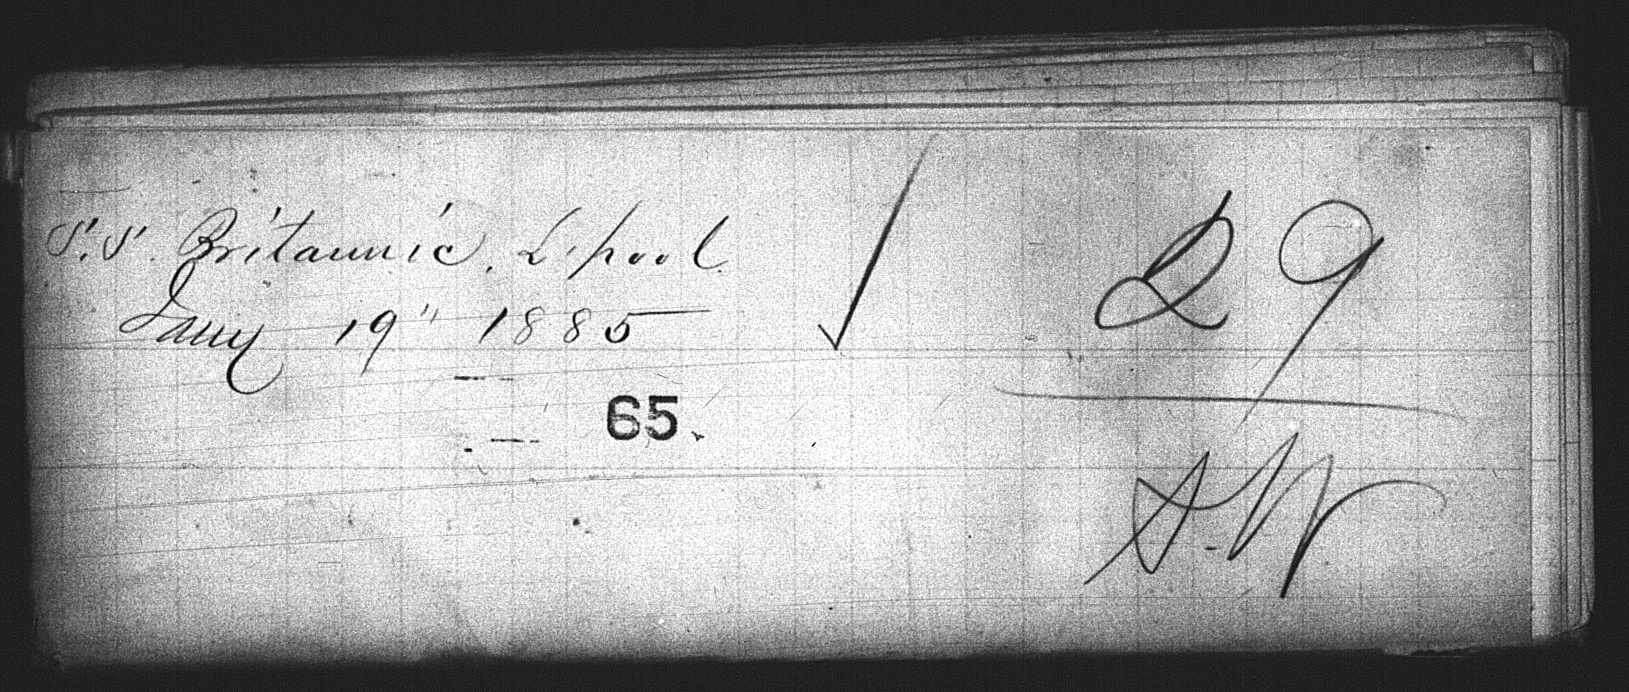 S.S. Britannic. L'pool.
Jany 19" 1885
65
29